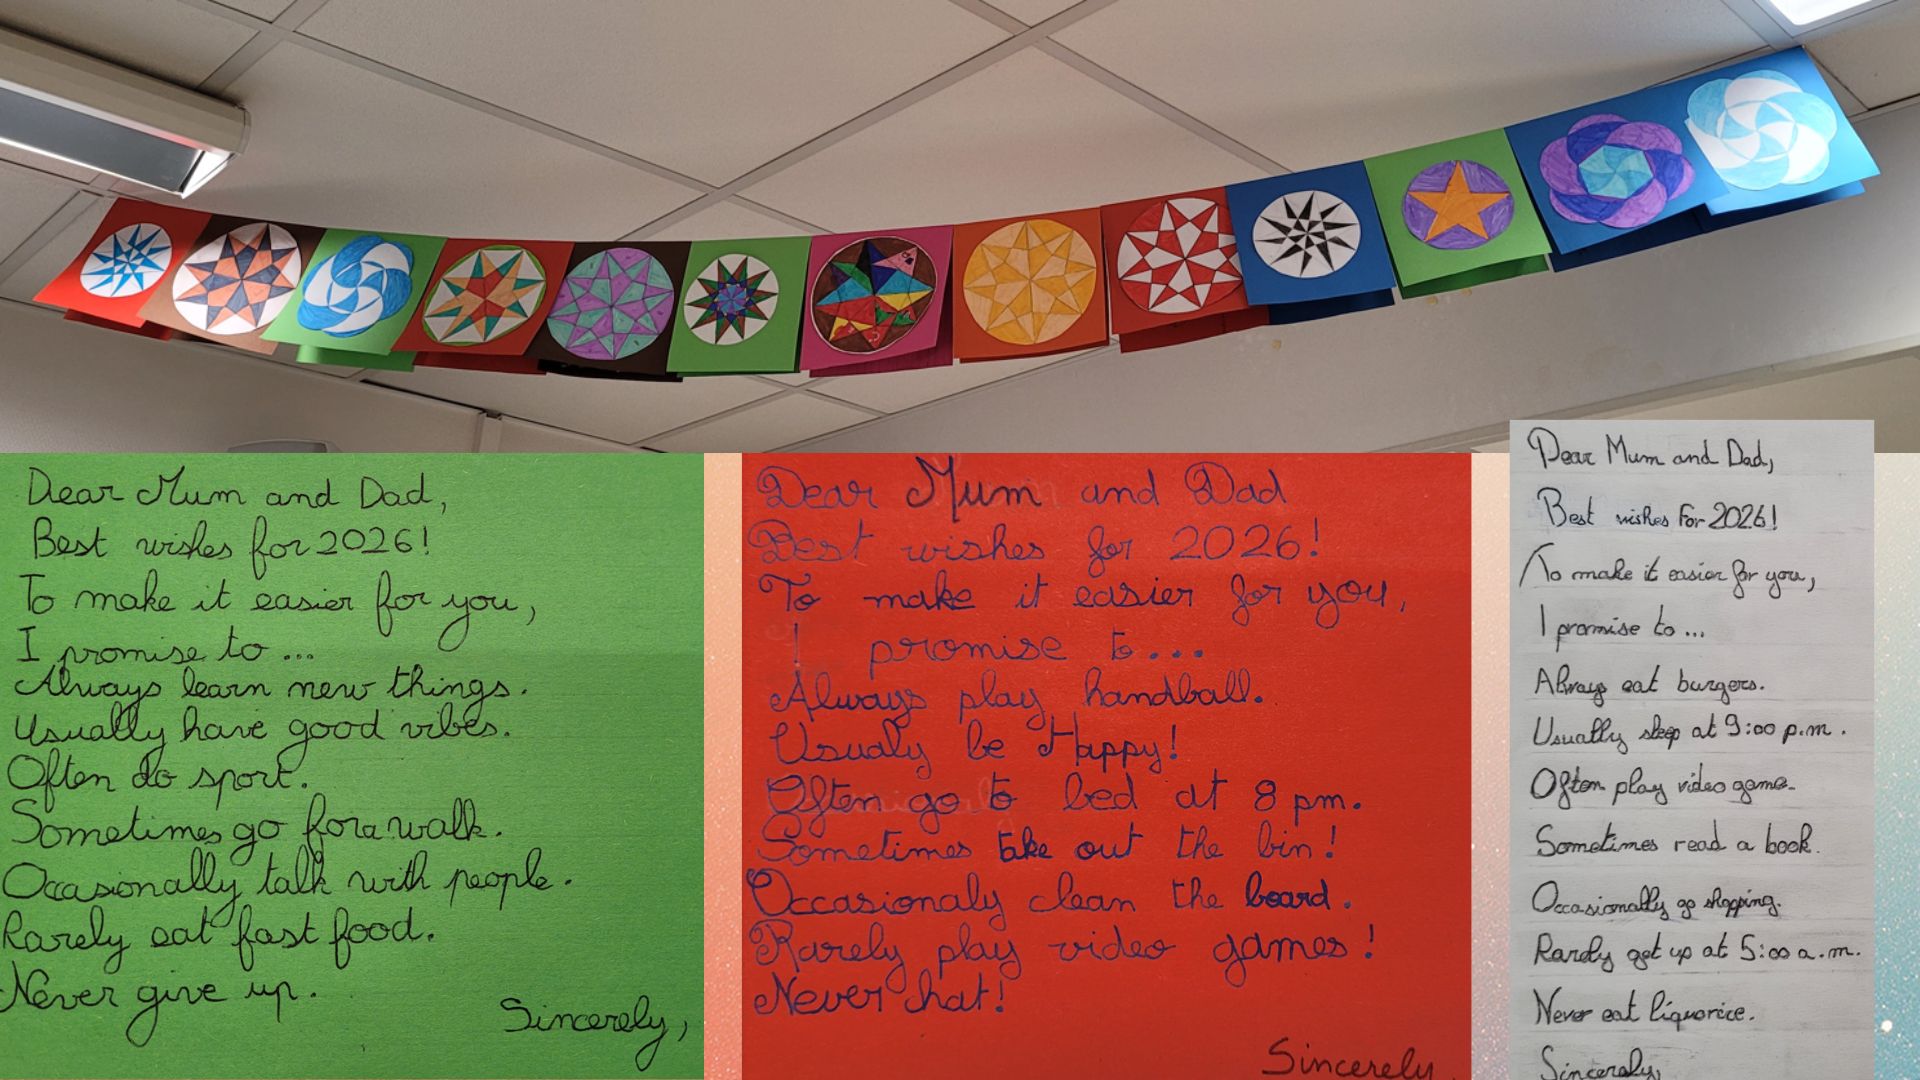 Dear Mum and Dad,
Best wishes for 2026!
To make it easier for you,
I promise to ...
Always learn new things.
Usually have good vibes.
Often do sport.
Sometimes go for a walk.
Occasionally talk with people.
Rarely eat fast food.
Never give up.
Sincerely,
Dear Mum and Dad
Best wishes for 2026!
To make it easier for you,
I promise to...
Always play handball.
Usualy be Happy!
Often go to bed at 8 pm.
Sometimes take out the bin!
Occasionaly clean the board.
Rarely play video games!
Never chat!
Sincerely
Dear Mum and Dad,
Best wishes For 2026!
To make it easier for you,
I promise to ...
Always eat burgers.
Usually sleep at 9:00 p.m.
Often play video games.
Sometimes read a book.
Occasionally go shopping.
Rarely get up at 5:00 a.m.
Never eat liquorice.
Sincerely,